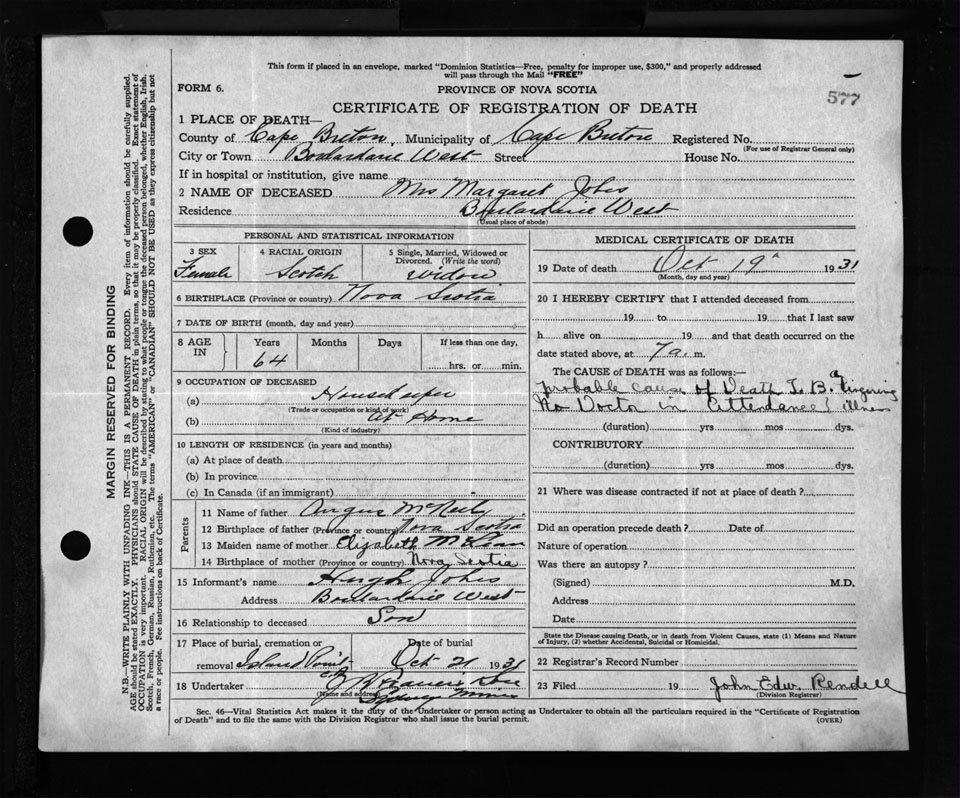 This form if placed in an envelope, marked "Dominion Statistics—Free, penalty for improper use, $300," and properly addressed
will pass through the Mail "FREE"
FORM 6.
PROVINCE OF NOVA SCOTIA
577
CERTIFICATE OF REGISTRATION OF DEATH
1 PLACE OF DEATH—
County of Cape Breton, Municipality of Cape Breton Registered No.
(For use of Registrar General only)
City or Town Boulardarie West Street House No.
If in hospital or institution, give name
2 NAME OF DECEASED Mrs Margaret
Residence Boulardarie West
(Usual place of abode)
PERSONAL AND STATISTICAL INFORMATION
3 SEX 4 RACIAL ORIGIN 5 Single, Married, Widowed or
Divorced. (Write the word)
Female Scotch Widow
6 BIRTHPLACE (Province or country) Nova Scotia
7 DATE OF BIRTH (month, day and year)
8 AGE IN Years Months Days If less than one day,
64 hrs. or min.
9 OCCUPATION OF DECEASED
(a) Housekeeper
(Trade or occupation or kind of work)
(b) At Home
(Kind of industry)
10 LENGTH OF RESIDENCE (in years and months)
(a) At place of death
(b) In province
(c) In Canada (if an immigrant)
Parents
11 Name of father Angus
12 Birthplace of father (Province or country) Nova Scotia
13 Maiden name of mother Elizabeth McLean
14 Birthplace of mother (Province or country) Nova Scotia
15 Informant's name Hugh
Address Boulardarie West
16 Relationship to deceased Son
17 Place of burial, cremation or Date of burial
removal Island Point Oct 21 1931
18 Undertaker
(Name and address) Sydney Mines
MEDICAL CERTIFICATE OF DEATH
19 Date of death Oct 19 1931
(Month, day and year)
20 I HEREBY CERTIFY that I attended deceased from
19 to 19 that I last saw
h alive on 19 and that death occurred on the
date stated above, at 7 a. m.
The CAUSE of DEATH was as follows:
probable cause of Death T. B. a lingering
No Doctor in Attendance illness
(duration) yrs mos dys.
CONTRIBUTORY
(duration) yrs mos dys.
21 Where was disease contracted if not at place of death?
Did an operation precede death? Date of
Nature of operation
Was there an autopsy?
(Signed) M.D.
Address
Date
State the Disease causing Death, or in death from Violent Causes, state (1) Means and Nature
of Injury, (2) whether Accidental, Suicidal or Homicidal.
22 Registrar's Record Number
23 Filed 19 John Edw. Rendell
(Division Registrar)
Sec. 46—Vital Statistics Act makes it the duty of the Undertaker or person acting as Undertaker to obtain all the particulars required in the "Certificate of Registration
of Death" and to file the same with the Division Registrar who shall issue the burial permit. (OVER)
MARGIN RESERVED FOR BINDING
N.B.—WRITE PLAINLY WITH UNFADING INK—THIS IS A PERMANENT RECORD. Every item of information should be carefully supplied.
AGE should be stated EXACTLY. PHYSICIANS should STATE CAUSE OF DEATH in plain terms, so that it may be properly classified. Exact statement of
OCCUPATION is very important. RACIAL ORIGIN will be described by stating to what people or tongue the deceased person belonged, whether English, Irish,
Scotch, French, German, Russian, Ruthenian, etc. The terms "AMERICAN" or "CANADIAN" SHOULD NOT BE USED as they express citizenship but not
a race or people. See instructions on back of Certificate.